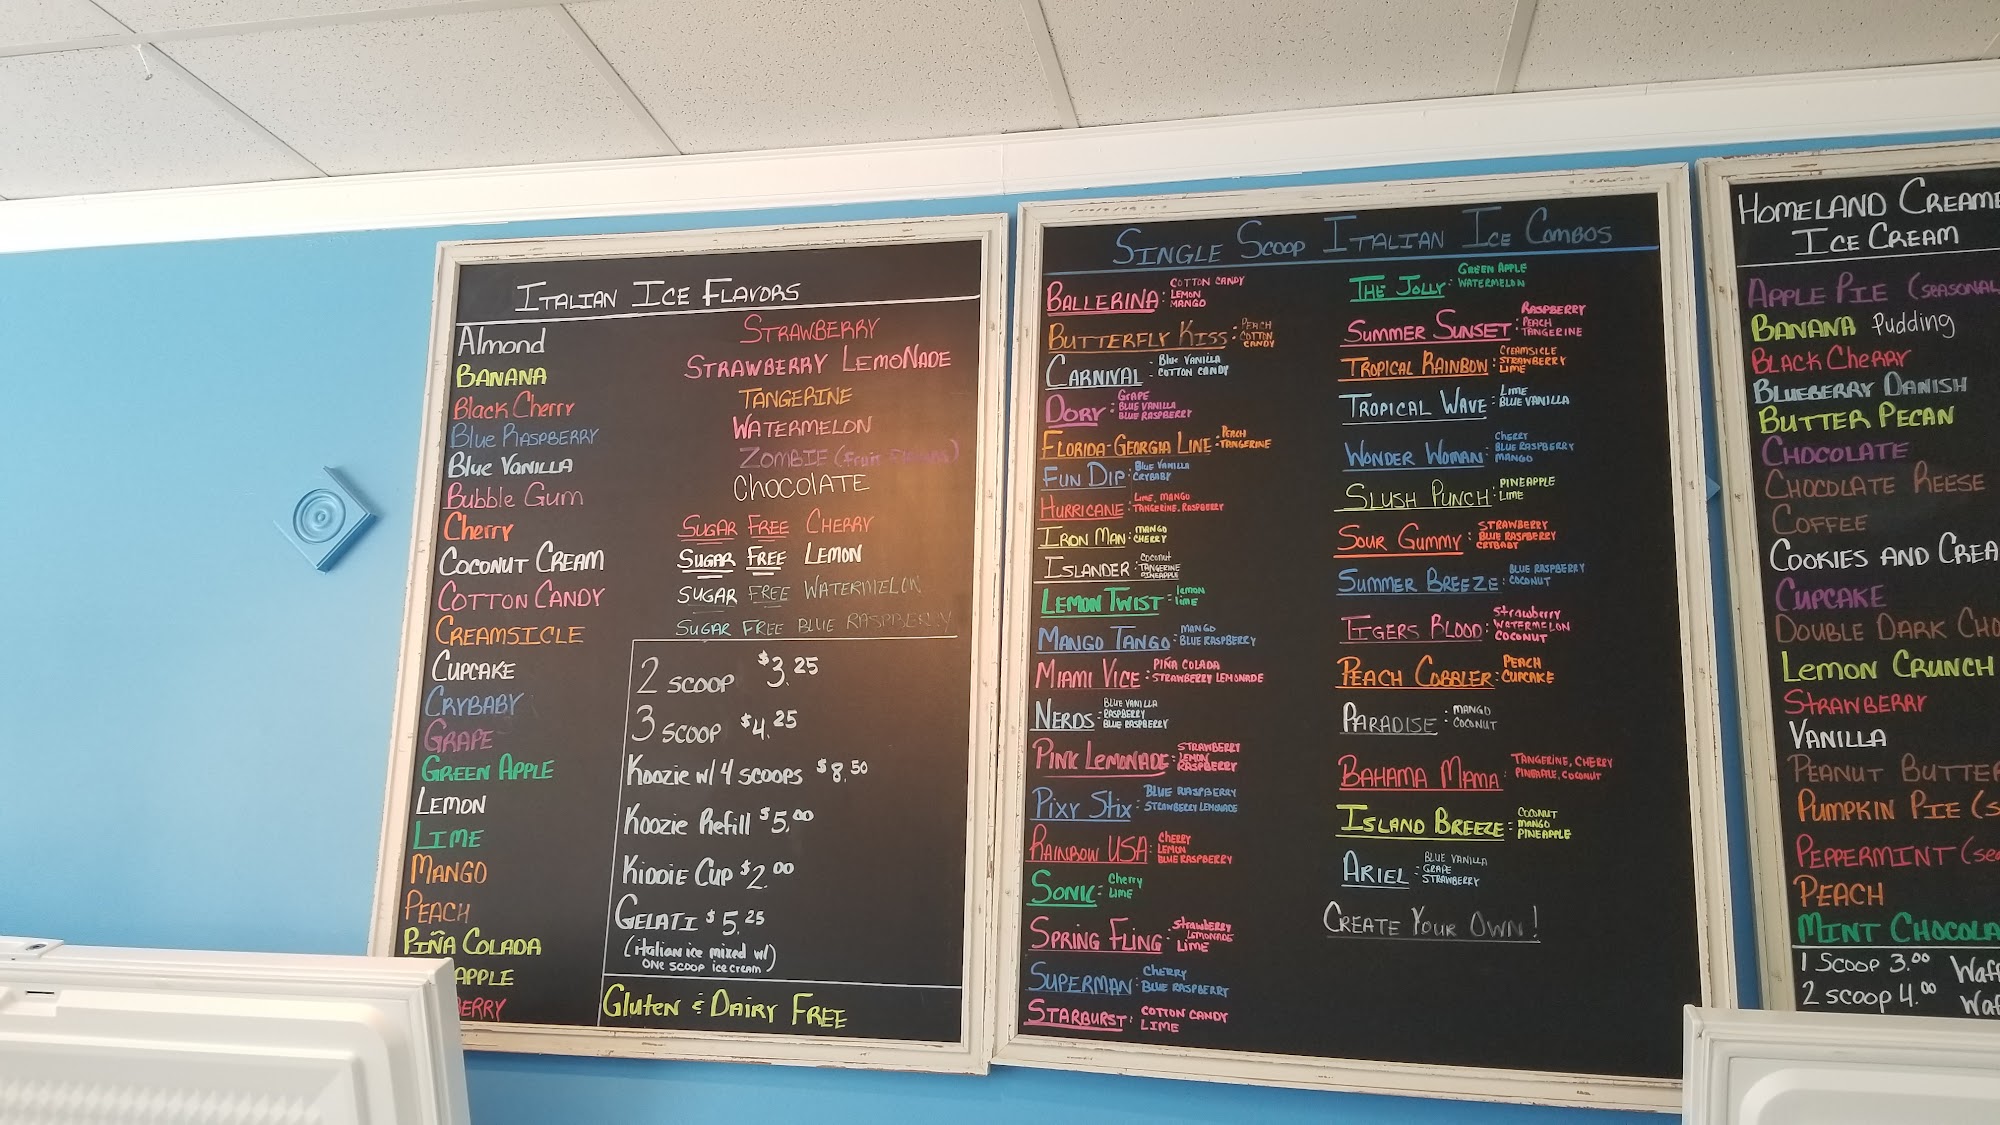 Italian Ice Flavors
Almond
Banana
Black Cherry
Blue Raspberry
Blue Vanilla
Bubble Gum
Cherry
Coconut Cream
Cotton Candy
Creamsicle
Cupcake
Crybaby
Grape
Green Apple
Lemon
Lime
Mango
Peach
Piña Colada
apple
berry
Strawberry
Strawberry Lemonade
Tangerine
Watermelon
Zombie (Fruit Flavors)
Chocolate
Sugar Free Cherry
Sugar Free Lemon
Sugar Free Watermelon
Sugar Free Blue Raspberry
2 scoop $3.25
3 scoop $4.25
Koozie w/ 4 scoops $8.50
Koozie Refill $5.00
Kiddie Cup $2.00
Gelati $5.25
(italian ice mixed w/)
one scoop ice cream)
Gluten & Dairy Free
Single Scoop Italian Ice Combos
Ballerina: Cotton Candy
Lemon
Mango
Butterfly Kiss: Peach
Cotton
Candy
Carnival - Blue Vanilla
- Cotton Candy
Dory: Grape
Blue Vanilla
Blue Raspberry
Florida-Georgia Line: Peach
Tangerine
Fun Dip: Blue Vanilla
Crybaby
Hurricane: Lime, Mango
Tangerine, Raspberry
Iron Man: Mango
Cherry
Islander: Coconut
Tangerine
Pineapple
Lemon Twist: lemon
lime
Mango Tango: Mango
Blue Raspberry
Miami Vice: Piña Colada
Strawberry Lemonade
Nerds: Blue Vanilla
Raspberry
Blue Raspberry
Pink Lemonade: Strawberry
Lemon
Raspberry
Pixy Stix: Blue Raspberry
Strawberry Lemonade
Rainbow USA: Cherry
Lemon
Blue Raspberry
Sonic: Cherry
Lime
Spring Fling: Strawberry
Lemonade
Lime
Superman: Cherry
Blue Raspberry
Starburst: Cotton Candy
Lime
The Jolly: Green Apple
Watermelon
Summer Sunset: Raspberry
Peach
Tangerine
Tropical Rainbow: Creamsicle
Strawberry
Lime
Tropical Wave: Lime
Blue Vanilla
Wonder Woman: Cherry
Blue Raspberry
Mango
Slush Punch: Pineapple
Lime
Sour Gummy: Strawberry
Blue Raspberry
Crybaby
Summer Breeze: Blue Raspberry
Coconut
Tigers Blood: Strawberry
Watermelon
Coconut
Peach Cobbler: Peach
Cupcake
Paradise: Mango
Coconut
Bahama Mama: Tangerine, Cherry
Pineapple, Coconut
Island Breeze: Coconut
Mango
Pineapple
Ariel: Blue Vanilla
Grape
Strawberry
Create Your Own!
Homeland Creame
Ice Cream
Apple Pie (seasonal
Banana Pudding
Black Cherry
Blueberry Danish
Butter Pecan
Chocolate
Chocolate Reese
Coffee
Cookies and Crea
Cupcake
Double Dark Cho
Lemon Crunch
Strawberry
Vanilla
Peanut Butter
Pumpkin Pie (s
Peppermint (sea
Peach
Mint Chocola
1 Scoop 3.00 Waff
2 scoop 4.00 Waf